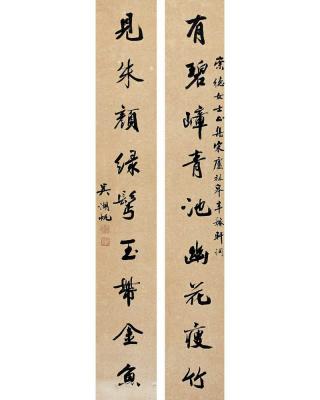 崇德女士正集宋盧祖皋辛稼軒詞
有碧嶂青池幽花瘦竹
見朱顏綠鬢玉帶金魚
吳湖帆